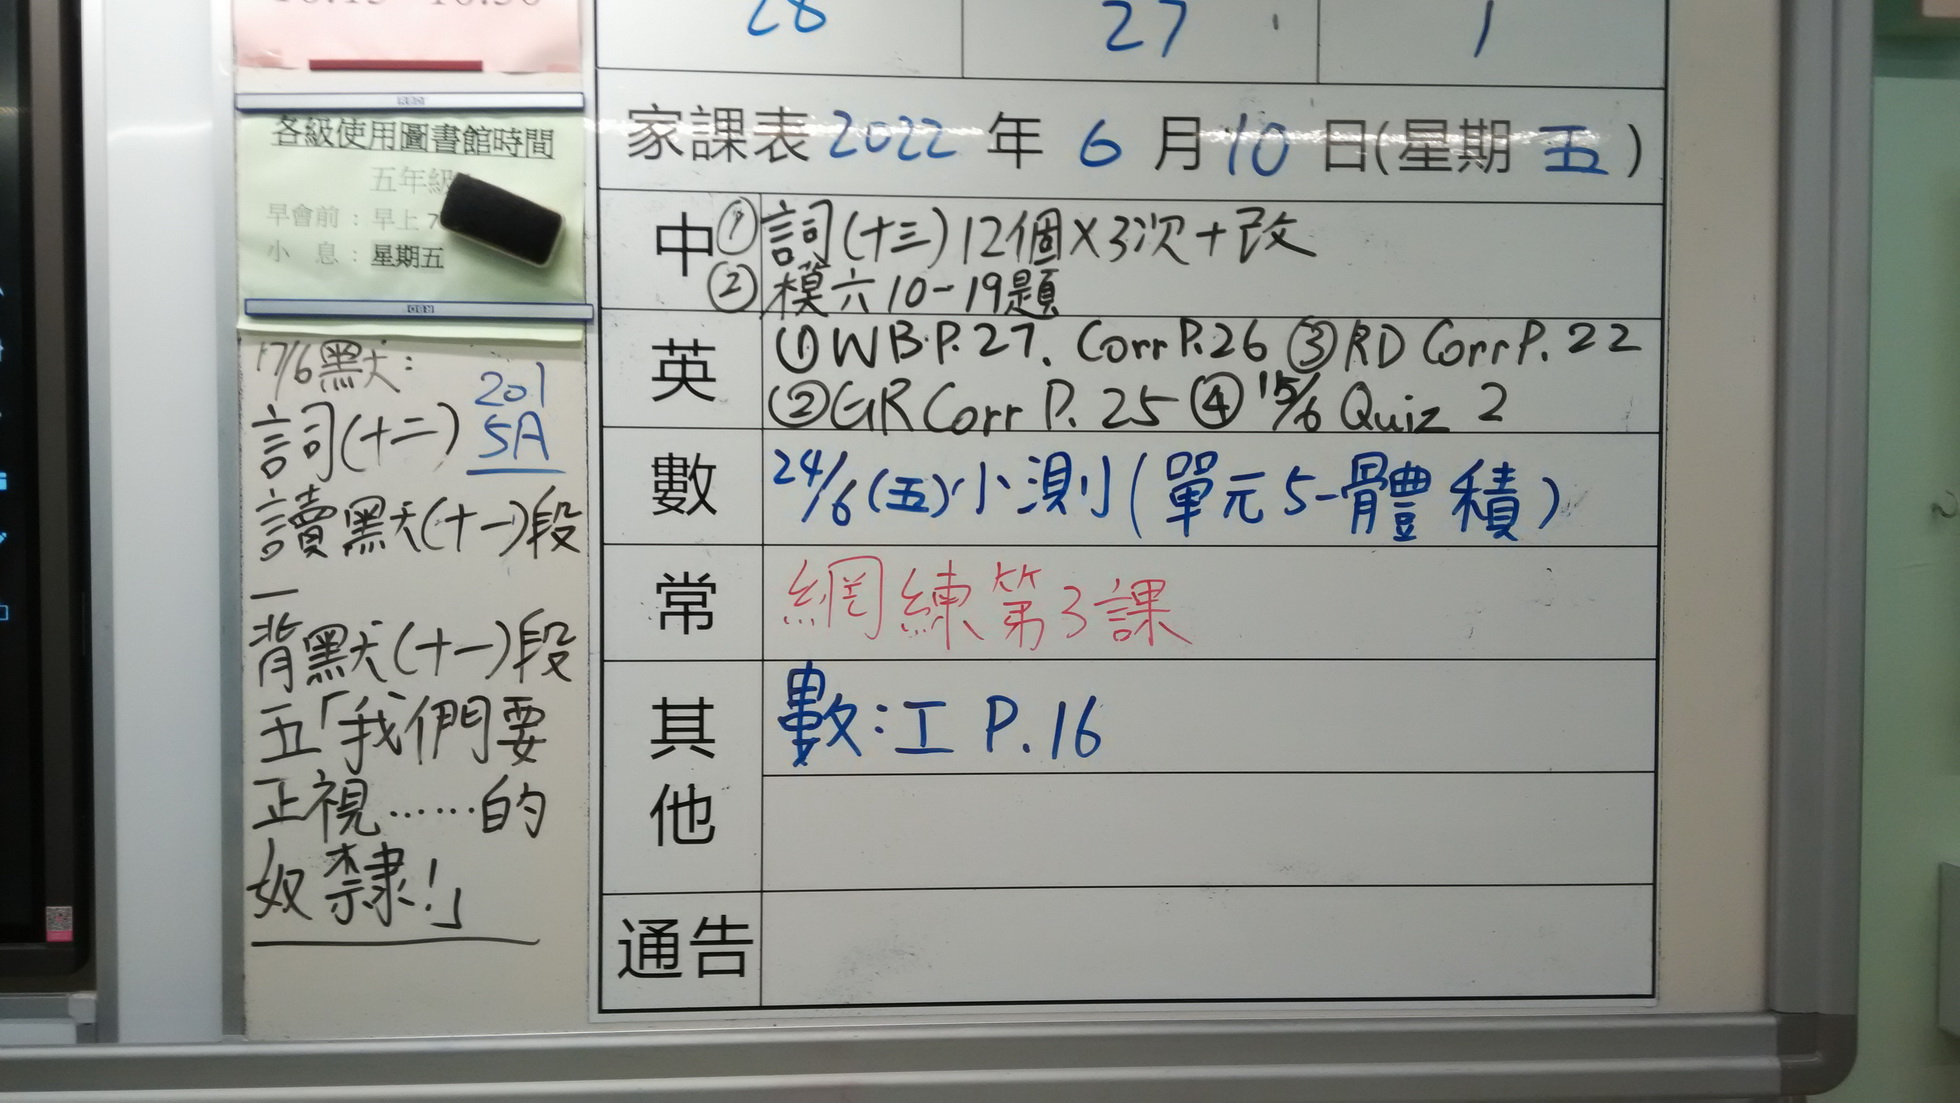 28 27 1
各級使用圖書館時間
五年級
早會前：早上7
小 息：星期五
17/6默:
201
詞(十二) 5A
讀默(十一)段
一
背默(十一)段
五「我們要
正視……的
奴隸!」
家課表 2022 年 6 月 10 日(星期 五)
中 ① 詞(十三)12個X3次+改
② 模六10-19題
英 ① WB.P.27. Corr P.26 ③ RD Corr P.22
② GR Corr P.25 ④ 15/6 Quiz 2
數 24/6(五)小測(單元5-體積)
常 網練第3課
其他 數:工 P.16
通告